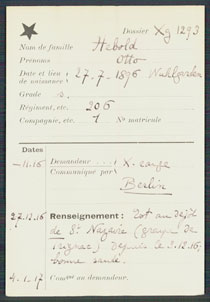 Dossier Xg 1293
Nom de famille Hebold
Prénoms Otto
Date et lieu de naissance } 27-7-1896
Grade s.
Régiment, etc. 206
Compagnie, etc. 1 Nº matricule
Dates
-11.16 Demandeur ... } X-rouge
Communiqué par } Berlin
27.12.16 Renseignement : est au dépôt
de St Nazaire (groupe de
) depuis le 3.12.16,
bonne santé.
4-1.17 Comᵒⁿ au demandeur.